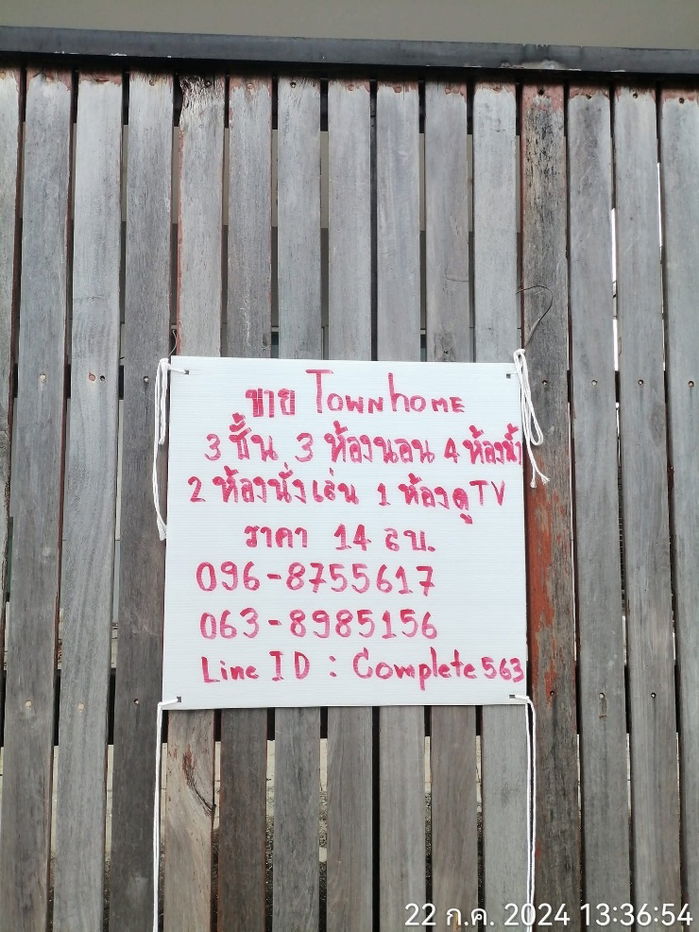 ขาย Townhome
3 ชั้น 3 ห้องนอน 4 ห้องน้ำ
2 ห้องนั่งเล่น 1 ห้องดู TV
ราคา 14 ลบ.
096-8755617
063-8985156
Line ID : Complete563
22 ก.ค. 2024 13:36:54